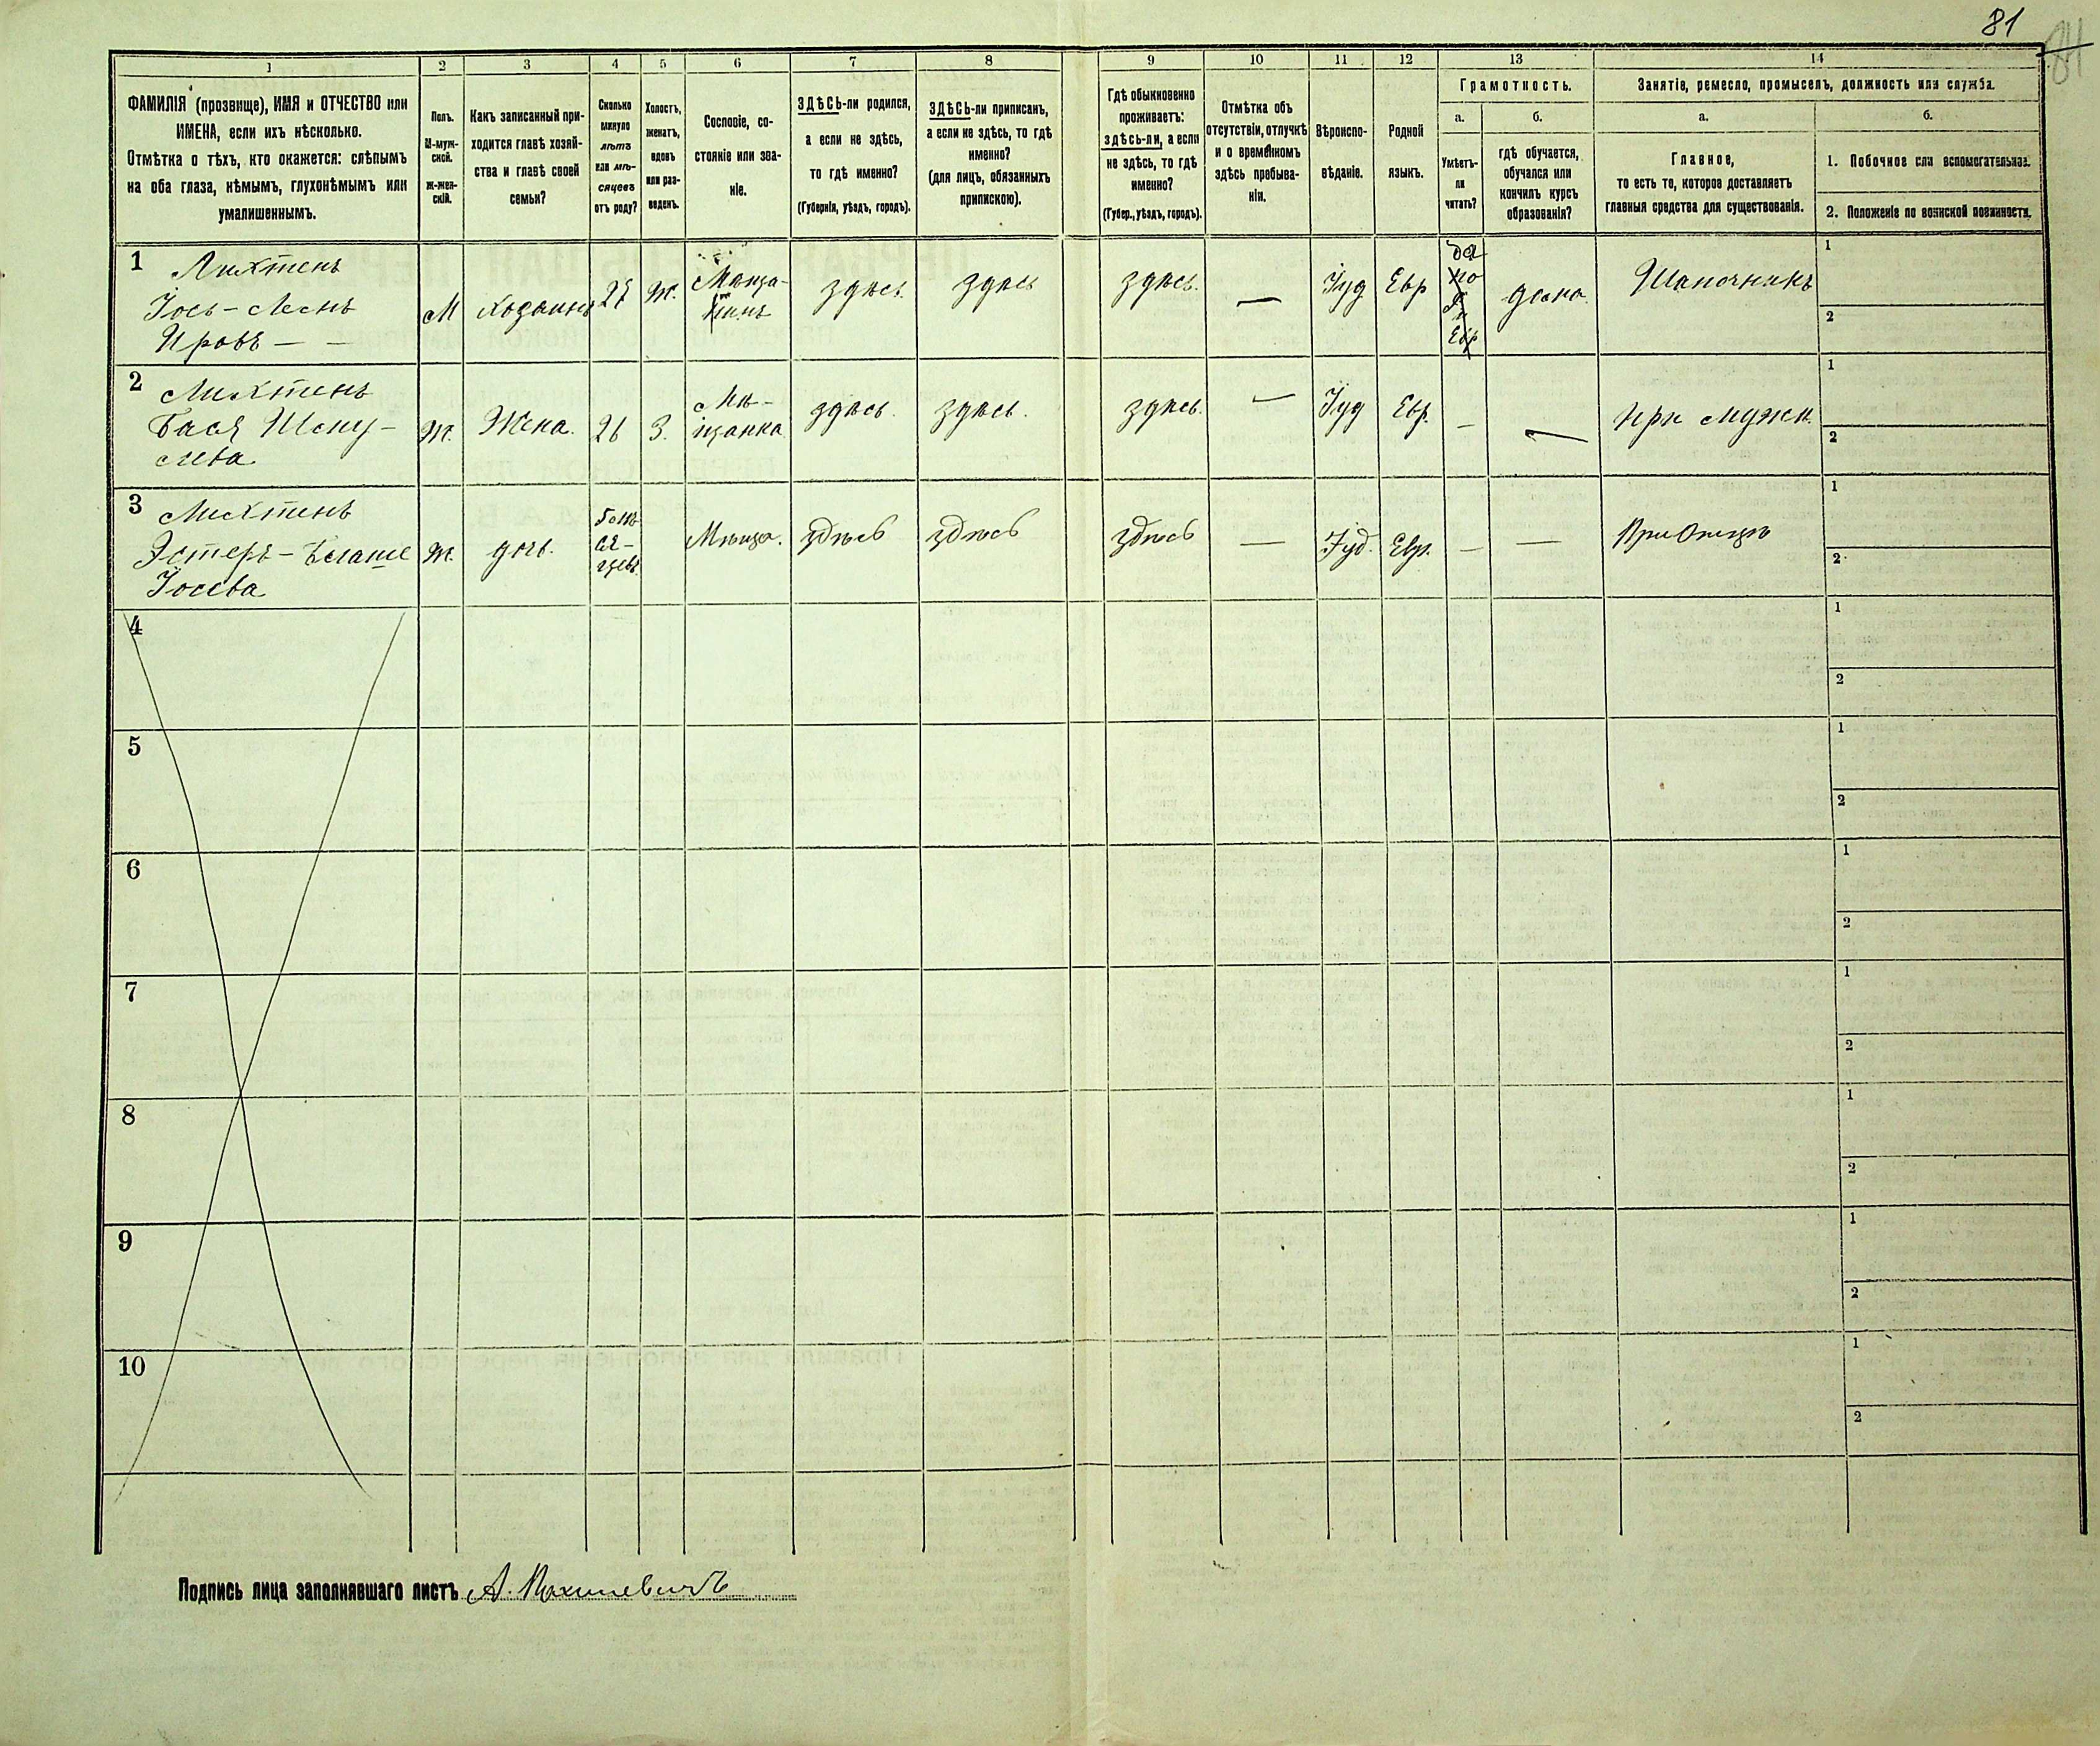 81
84
1
2
3
4
5
6
7
8
9
10
11
12
13
14
ФАМИЛІЯ (прозвище), ИМЯ и ОТЧЕСТВО или
ИМЕНА, если ихъ нѣсколько.
Отмѣтка о тѣхъ, кто окажется: слѣпымъ
на оба глаза, нѣмымъ, глухонѣмымъ или
умалишеннымъ.
Полъ.
М-муж-
ской.
Ж-жен-
скій.
Какъ записанный при-
ходится главѣ хозяй-
ства и главѣ своей
семьи?
Сколько
минуло
лѣтъ
или мѣ-
сяцевъ
отъ роду?
Холостъ,
женатъ,
вдовъ
или раз-
веденъ.
Сословіе, со-
стояніе или зва-
ніе.
ЗДѢСЬ-ли родился,
а если не здѣсь,
то гдѣ именно?
(Губернія, уѣздъ, городъ).
ЗДѢСЬ-ли приписанъ,
а если не здѣсь, то гдѣ
именно?
(для лицъ, обязанныхъ
припискою).
Гдѣ обыкновенно
проживаетъ:
здѣсь-ли, а если
не здѣсь, то гдѣ
именно?
(Губер., уѣздъ, городъ).
Отмѣтка объ
отсутствіи, отлучкѣ
и о временномъ
здѣсь пребыва-
ніи.
Вѣроиспо-
вѣданіе.
Родной
языкъ.
Грамотность.
а.
Умѣетъ-
ли
читать?
б.
гдѣ обучается,
обучался или
кончилъ курсъ
образованія?
Занятіе, ремесло, промыселъ, должность или служба.
а.
Главное,
то есть то, которое доставляетъ
главныя средства для существованія.
б.
1. Побочное или вспомогательное.
2. Положеніе по воинской повинности.
1
Лихтенъ
Іось-
М
Хозяинъ
27
Ж.
Мѣща-
нинъ
здѣсь
здѣсь
здѣсь.
—
Іуд
Евр
да
по
Евр
дома
Шапочникъ
1
2
2
Лихтенъ
Бася
Ж.
Жена.
26
З.
Мѣ-
щанка
здѣсь.
здѣсь.
здѣсь.
—
Іуд
Евр.
—
—
При мужѣ.
1
2
3
Лихтенъ
Эстеръ-
Іосева
Ж.
дочь.
Мѣща.
здѣсь
здѣсь
здѣсь
—
Іуд.
Евр.
—
—
При Отцѣ
1
2
4
1
2
5
1
2
6
1
2
7
1
2
8
1
2
9
1
2
10
1
2
Подпись лица заполнявшаго листъ А.